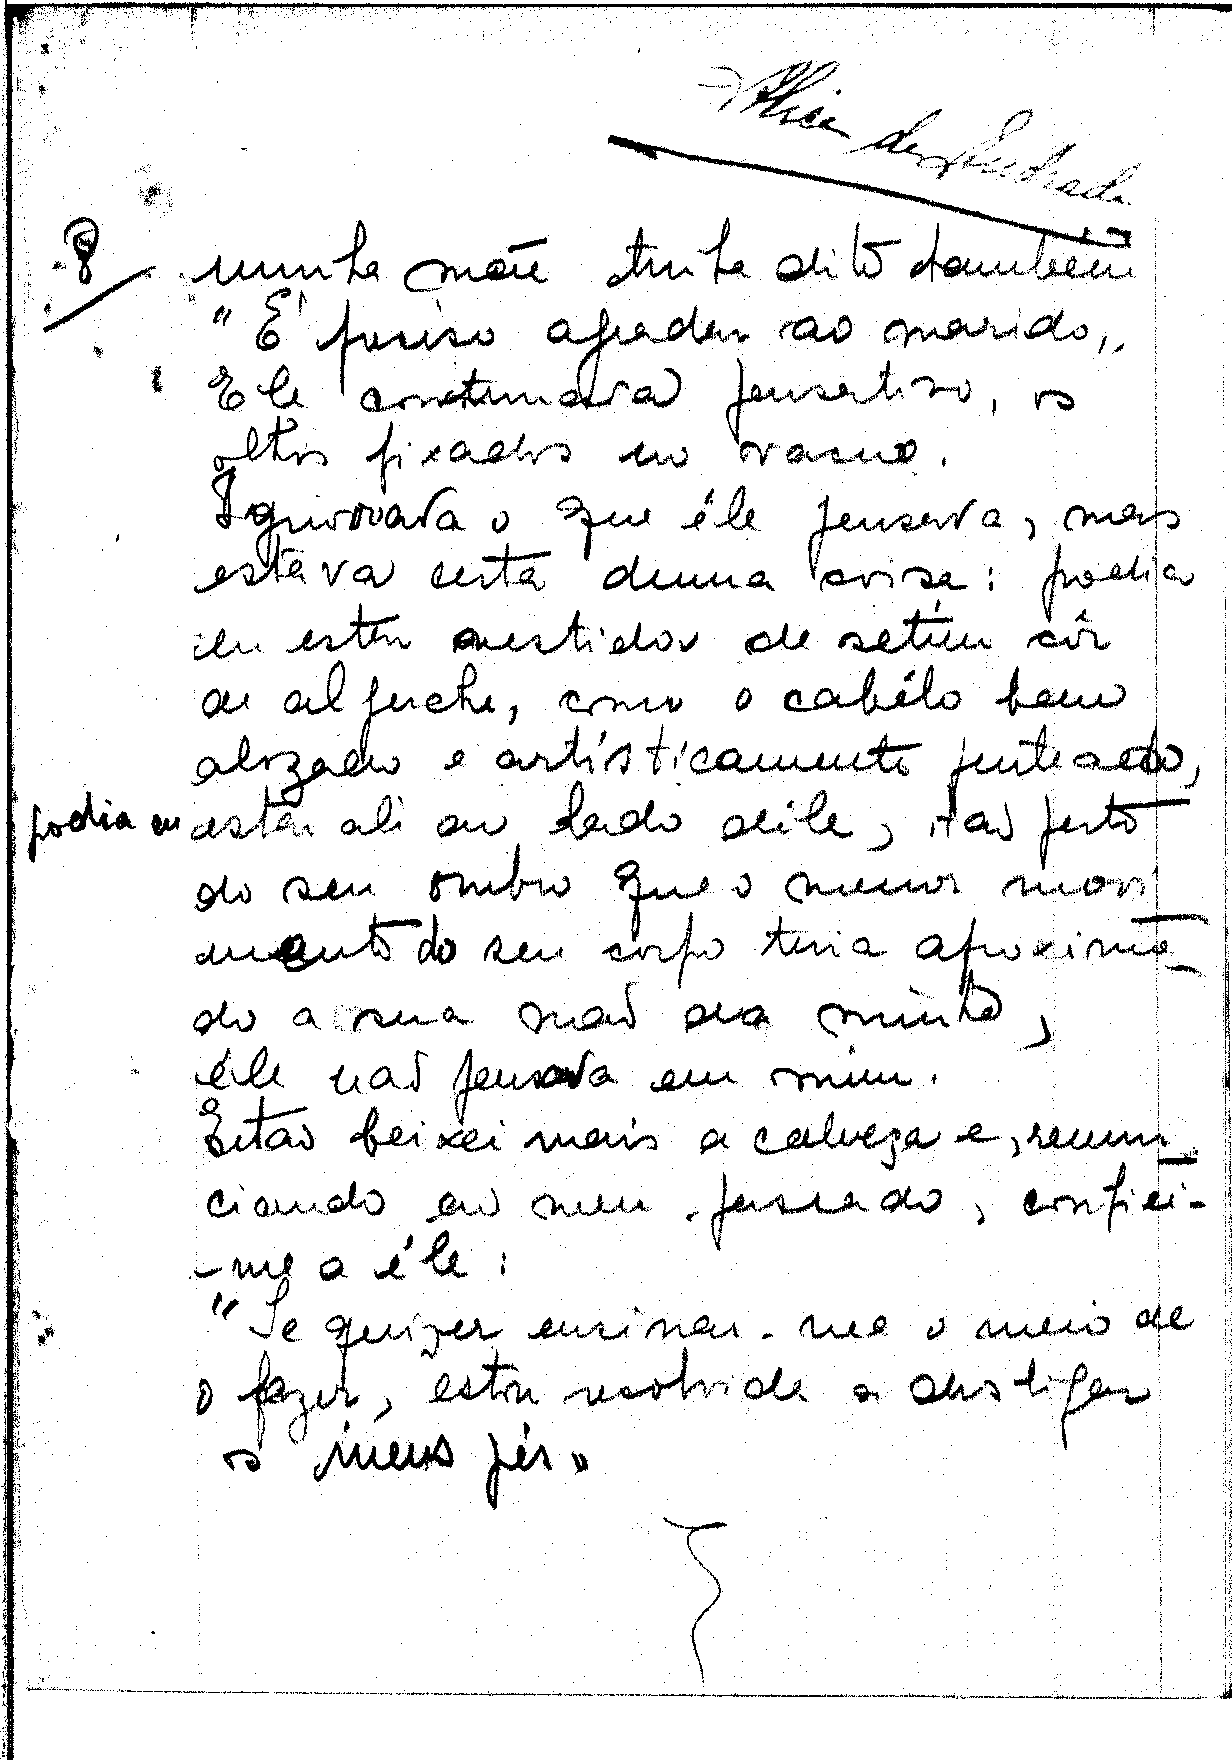 Alice de Andrade
8
minha mãe tinha dito também
"É preciso agradar ao marido,,
Ele continuava pensativo, os
olhos fixados no vacuo.
Ignorava o que êle pensava, mas
estava certa duma coisa: podia
eu estar vestida de setim côr
de alperche, com o cabêlo bem
alizado e artísticamente penteado,
podia eu estar ali ao lado dêle, tão perto
do seu ombro que o menor movi
mento do seu corpo teria aproxima-
do a sua mão da minha,
êle não pensava em mim.
Então beixei mais a cabeça e, renun-
ciando ao meu passado, confiei-
-me a êle:
"Se quizer ensinar-me o meio de
o fazer, estou resolvida a desligar
os meus pés"